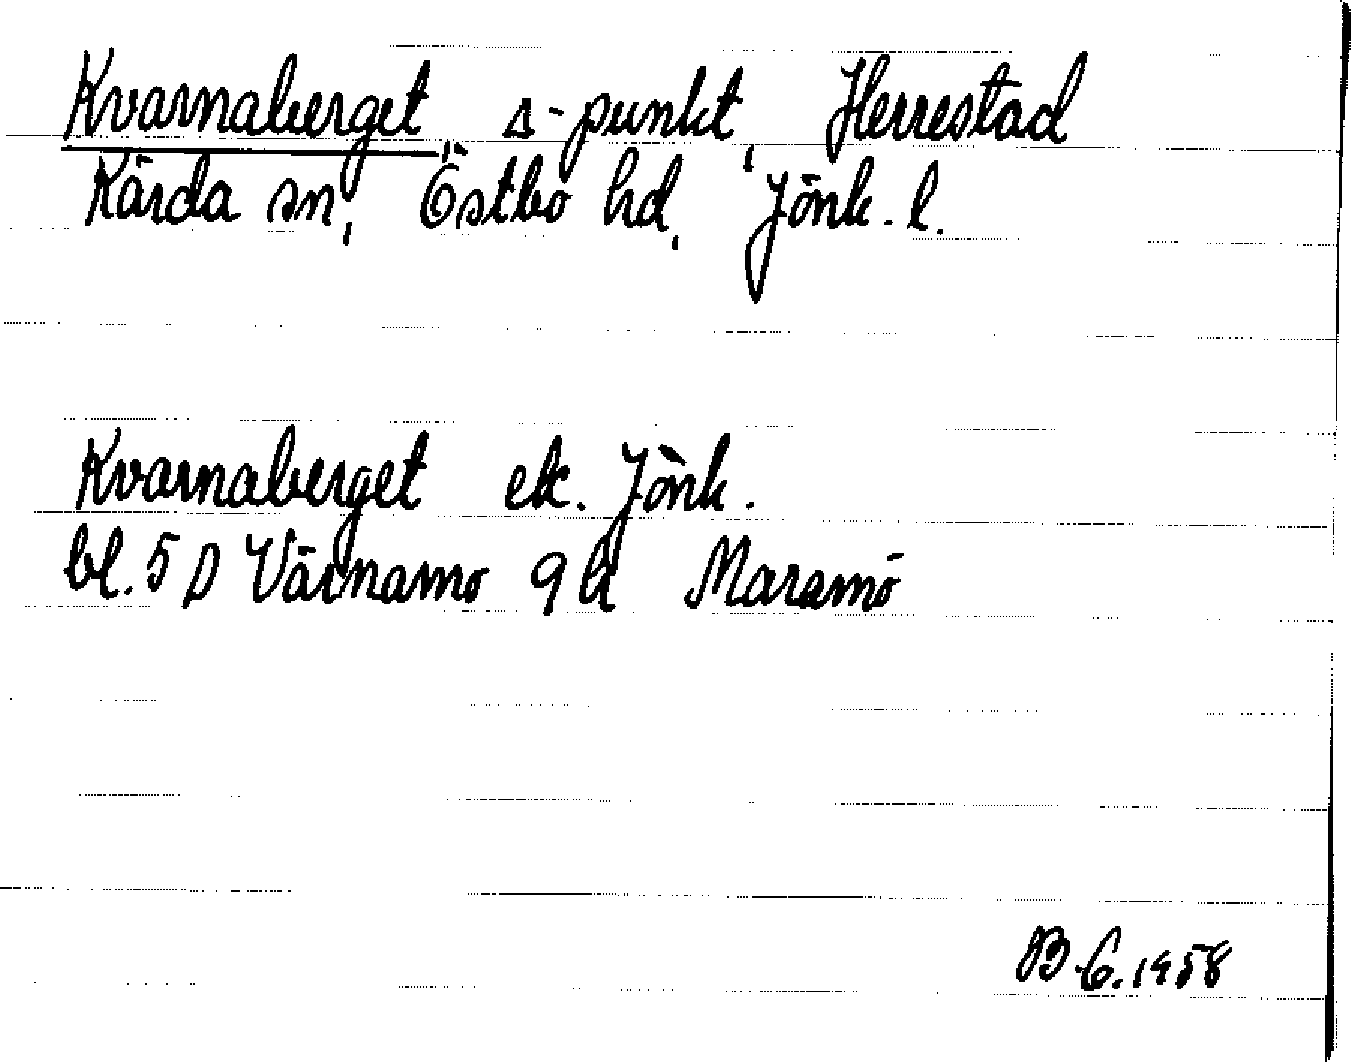 Kvarnaberget, Δ-punkt, Herrestad
Kärda sn, Östbo hd, Jönk. l.
Kvarnaberget ek. Jönk.
bl. 5 D Värnamo 9 h Maramö
B G. 1958